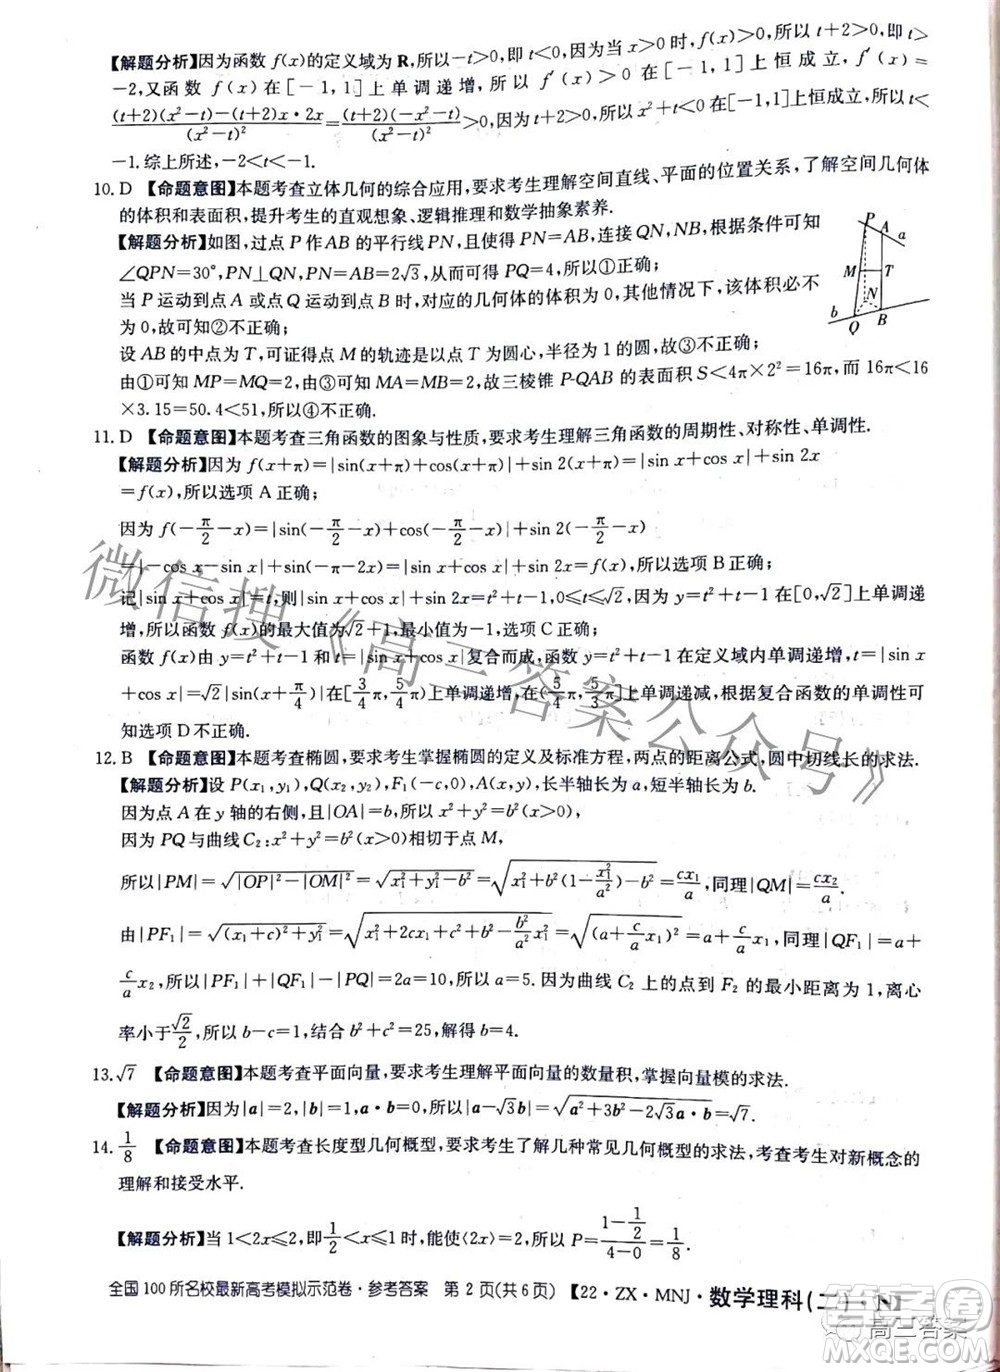 【解题分析】因为函数 f(x)的定义域为 R,所以-t>0,即 t<0.因为当 x>0 时,f(x)>0,所以 t+2>0,即 t>
-2,又函数 f(x)在[-1,1]上单调递增,所以 f′(x)>0 在[-1,1]上恒成立,即 f′(x)=
((t+2)(x²-t)-(t+2)x·2x)/(x²-t)²=((t+2)(-x²-t))/(x²-t)²>0,因为 t+2>0,所以 x²+t<0 在[-1,1]上恒成立,所以 t<
-1.综上所述,-2<t<-1.
10. D 【命题意图】本题考查立体几何的综合应用,要求考生理解空间直线、平面的位置关系,了解空间几何体
的体积和表面积,提升考生的直观想象、逻辑推理和数学抽象素养.
【解题分析】如图,过点 P 作 AB 的平行线 PN,且 PN=AB,连接 QN,NB,根据条件可知
∠QPN=30°,PN⊥QN,PN=AB=2√3,从而可得 PQ=4,所以①正确;
当 P 运动到点 A 或点 Q 运动到点 B 时,对应的几何体的体积为 0,其他情况下,该体积必不
为 0,故可知②不正确;
设 AB 的中点为 T,可知点 M 的轨迹是以点 T 为圆心,半径为 1 的圆,故③不正确;
由①可知 MP=MQ=2,由③可知 MA=MB=2,故三棱锥 P-QAB 的表面积 S<4π×2²=16π,而 16π<16
×3.15=50.4<51,所以④不正确.
P
A
a
M
T
N
b
Q
B
11. D 【命题意图】本题考查三角函数的图象与性质,要求考生理解三角函数的周期性、对称性、单调性.
【解题分析】因为 f(x+π)=|sin(x+π)+cos(x+π)|+sin 2(x+π)=|sin x+cos x|+sin 2x
=f(x),所以选项 A 正确;
因为 f(-π/2-x)=|sin(-π/2-x)+cos(-π/2-x)|+sin 2(-π/2-x)
=|-cos x-sin x|+sin(-π-2x)=|sin x+cos x|+sin 2x=f(x),所以选项 B 正确;
记|sin x+cos x|=t,则|sin x+cos x|+sin 2x=t²+t-1,0≤t≤√2,因为 y=t²+t-1 在[0,√2]上单调递
增,所以函数 f(x)的最大值为√2+1,最小值为-1,选项 C 正确;
函数 f(x)由 y=t²+t-1 和 t=|sin x+cos x|复合而成,函数 y=t²+t-1 在定义域内单调递增,t=
|sin x+cos x|=√2|sin(x+π/4)|在[3/4π,5/4π]上单调递增,在[5/4π,5/3π]上单调递减,根据复合函数的单调性可
知选项 D 不正确.
12. B 【命题意图】本题考查椭圆,要求考生掌握椭圆的定义及标准方程,两点的距离公式,圆中切线长的求法.
【解题分析】设 P(x₁,y₁),Q(x₂,y₂),F₁(-c,0),A(x,y),长半轴长为 a,短半轴长为 b.
因为点 A 在 y 轴的右侧,且|OA|=b,所以 x²+y²=b²(x>0).
因为 PQ 与曲线 C₂:x²+y²=b²(x>0)相切于点 M,
所以|PM|=√(|OP|²-|OM|²)=√(x₁²+y₁²-b²)=√(x₁²+b²(1-x₁²/a²)-b²)=cx₁/a,同理|QM|=cx₂/a.
由|PF₁|=√((x₁+c)²+y₁²)=√(x₁²+2cx₁+c²+b²-b²/a²x₁²)=√((a+c/a x₁)²)=a+c/a x₁,同理|QF₁|=a+
c/a x₂,所以|PF₁|+|QF₁|-|PQ|=2a=10,所以 a=5.因为曲线 C₂ 上的点到 F₂ 的最小距离为 1,离心
率小于√2/2,所以 b-c=1,结合 b²+c²=25,解得 b=4.
13. √7 【命题意图】本题考查平面向量,要求考生理解平面向量的数量积,掌握向量模的求法.
【解题分析】因为|a|=2,|b|=1,a·b=0,所以|a-√3b|=√(a²+3b²-2√3a·b)=√7.
14. 1/8 【命题意图】本题考查长度型几何概型,要求考生了解几种常见几何概型的求法,考查考生对新概念的
理解和接受水平.
【解题分析】当 1<2x≤2,即1/2<x≤1 时,[2x]=2,所以 P=(1-1/2)/(4-0)=1/8.
全国 100 所名校最新高考模拟示范卷·参考答案 第 2 页(共 6 页)【22·ZX·MNJ·数学理科(二)·N】
微信搜《高三答案公众号》
答案圈
高三答案
MXQE.COM